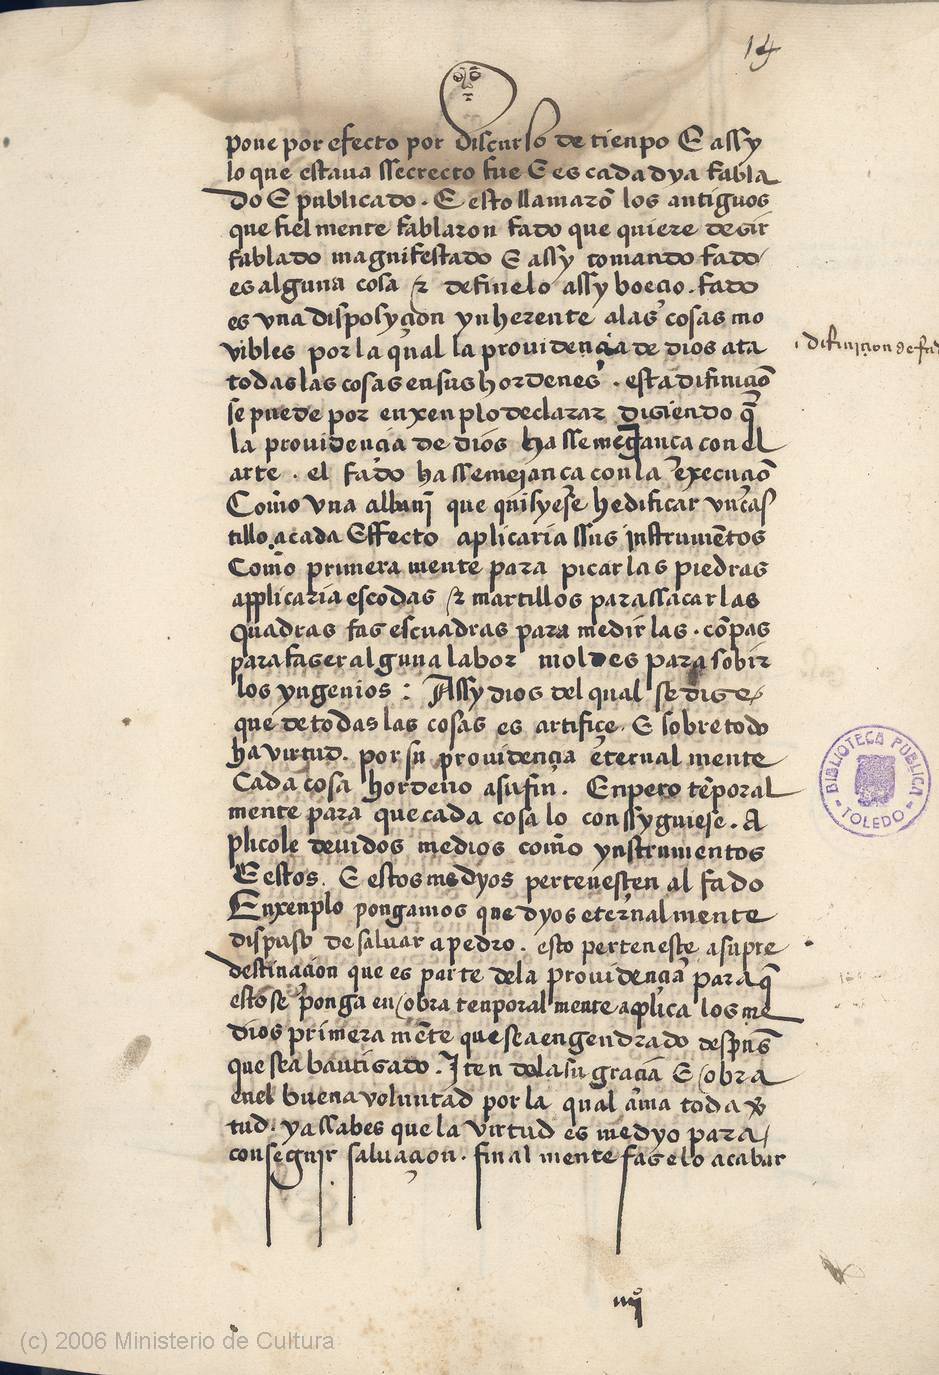 14
pone por efecto por discurso de tienpo E assy
lo que estaua ssecrecto fue E es cada dya fabla
do E publicado . E esto llamarõ los antiguos
que fiel mente fablaron fado que quiere desir
fablado magnifestado E assy tomando fado
es alguna cosa & definelo assy boecio . fado
es vna disposyçion ynherente a las cosas mo
vibles por la qual la prouidençia de dios ata
todas las cosas en sus hordenes . esta difiniçiõ
difiniçion de fad
se puede por enxenplo declarar disiendo q̃
la prouidençia de dios ha ssemejança con el
arte . el fado ha ssemejança con la execuçiõ
Com̃o vna albanj̃ que quisyese hedificar vn cas
tillo a cada Effecto aplicaria ssus jnstrumẽtos
Com̃o primera mente para picar las piedras
applicaria escodas & martillos para ssacar las
quadras fas escuadras para medir las . cõpas
para faser alguna labor moldes para sobir
los yngenios : Assy dios del qual se dise
que de todas las cosas es artifiçe E sobre todo
ha virtud . por su prouidençia eternal mente
Cada cosa hordeno a su fin . Enpero tẽporal
mente para que cada cosa lo conssyguiese . A
plicole deuidos medios com̃o ynstrumentos
E estos . E estos medyos perteneſçen al fado
Enxenplo pongamos que dyos eternal mente
dispuso de saluar a pedro . esto perteneste a su pre
destinaçion que es parte dela prouidençia para q̃
esto se ponga en obra tenporal mente aplica los me
dios primera mẽte que sea engendrado despues
que sea bautisado . Iten dela su graçia E obra
enel buena voluntad por la qual ama toda vir
tud . ya ssabes que la virtud es medyo para
conseguir saluaçion . final mente faselo acabar
iiij
BIBLIOTECA PUBLICA
TOLEDO
(c) 2006 Ministerio de Cultura